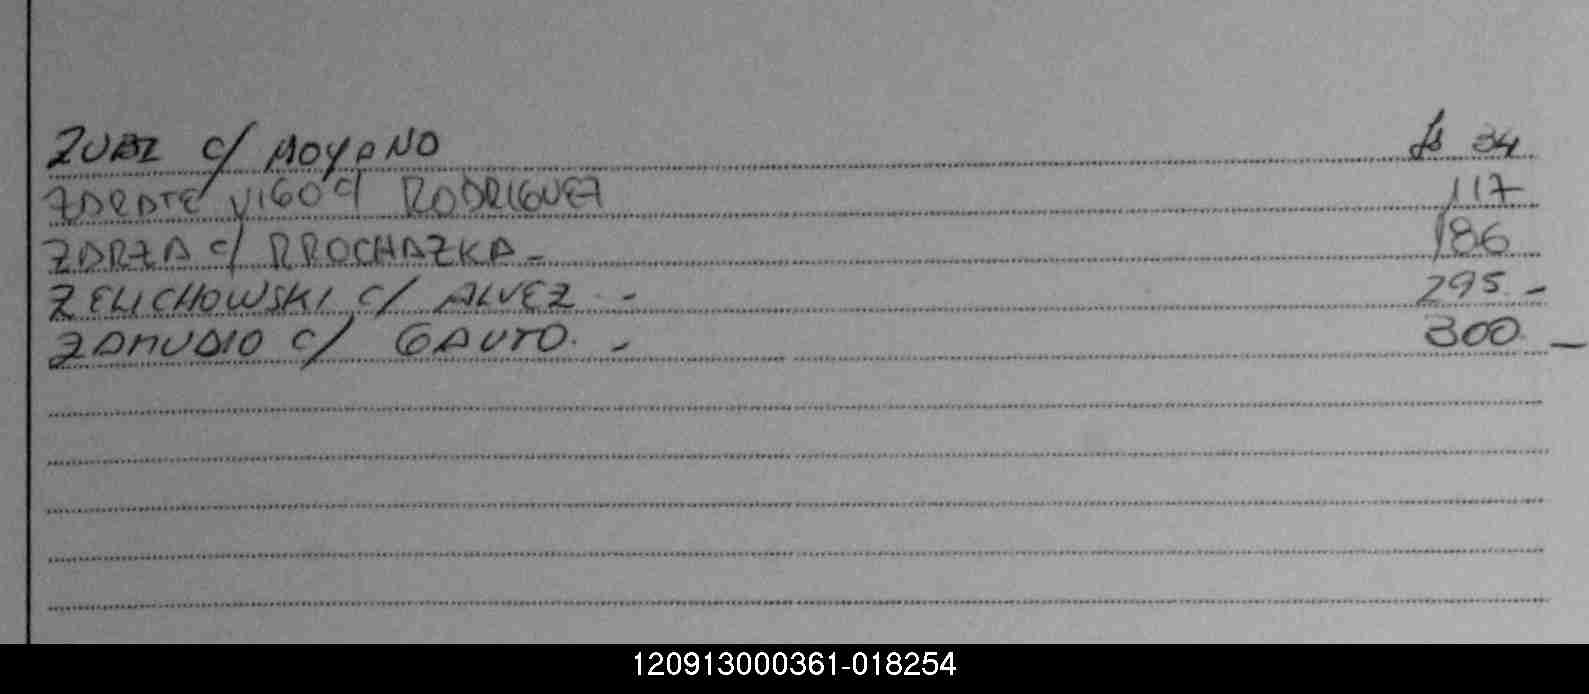 ZUBZ c/ MOYANO fs 34
ZARATE VIGO c/ RODRIGUEZ 117
ZARZA c/ PROCHAZKA - 186
ZELICHOWSKI c/ ALVEZ - 295 -
ZAMUDIO c/ GAUTO. - 300 -
120913000361-018254